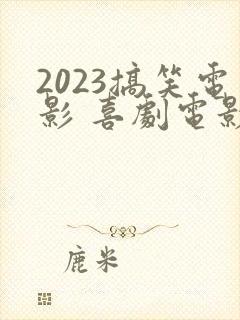 2023搞笑电
影 喜劇电影
鹿米